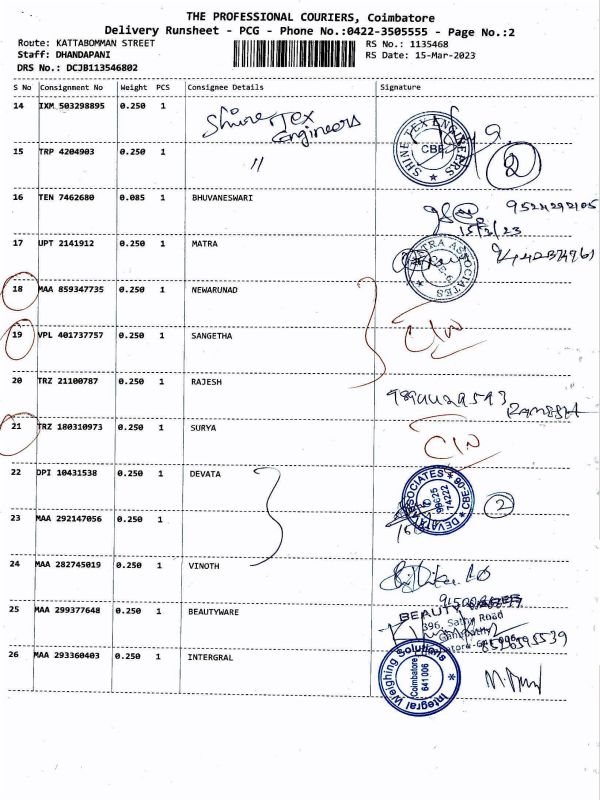 THE PROFESSIONAL COURIERS, Coimbatore
Delivery Runsheet - PCG - Phone No.:0422-3505555 - Page No.:2
Route: KATTABOMMAN STREET
Staff: DHANDAPANI
DRS No.: DCJB113546802
RS No.: 1135468
RS Date: 15-Mar-2023
S No Consignment No Weight PCS Consignee Details Signature
14 IXM 503298895 0.250 1 Shine Tex Engineers
SHINE TEX ENGINEERS CBE
15 TRP 4204903 0.250 1 〃 2
16 TEN 7462680 0.085 1 BHUVANESWARI
9524292105
15/3/23
17 UPT 2141912 0.250 1 MATRA
18 MAA 859347735 0.250 1 NEWARUNAD
19 VPL 401737757 0.250 1 SANGETHA
20 TRZ 21100787 0.250 1 RAJESH
RAMESH
21 TRZ 180310973 0.250 1 SURYA
22 DPI 10431538 0.250 1 DEVATA
DEVATA ASSOCIATES CBE-08
2
23 MAA 292147056 0.250 1
24 MAA 282745019 0.250 1 VINOTH
25 MAA 299377648 0.250 1 BEAUTYWARE
BEAUTY
396, Sathy Road
26 MAA 293360403 0.250 1 INTERGRAL
Integral Weighing Solutions
Coimbatore
641 006